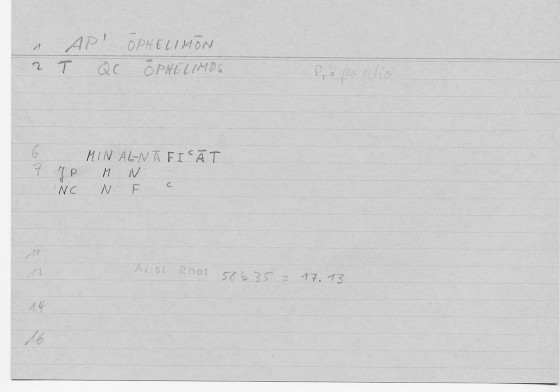 1 AP' ŌPHELIMŌN
2 T QC ŌPHELIMOS
6 MIN AL-NĀFICĀT
7 JP M N
NC N F C
11
13 Arist Rhet 58b35 = 17.13
14
16